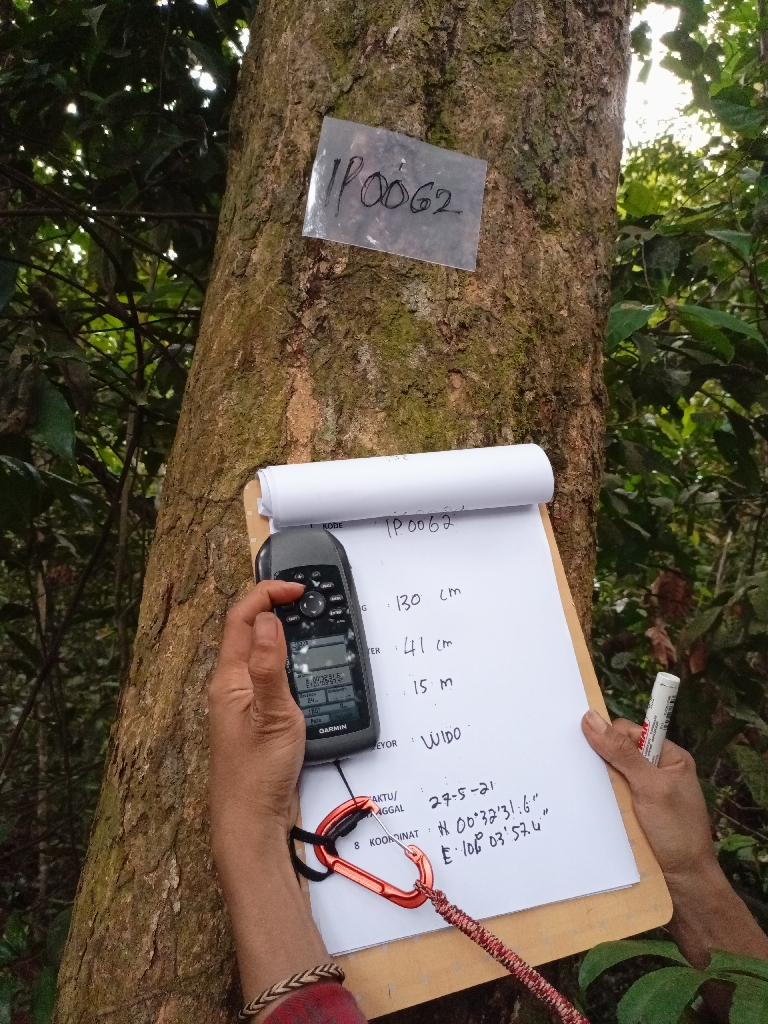 IP0062
1 KODE : IP0062
G : 130 cm
TER : 41 cm
15 m
GARMIN
EYOR : WIDO
AKTU/
NGGAL : 27-5-21
8 KOORDINAT : N 00°32'31.6"
E.
03'57.4"